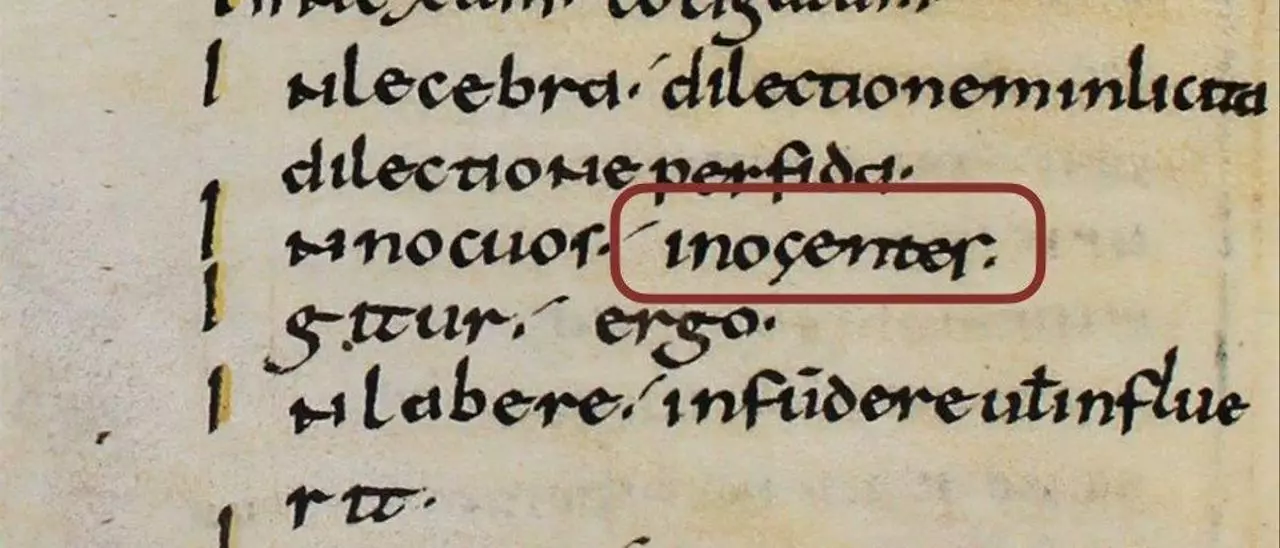 I Nlecebra· dilectionem inlicita
dilectione perfida·
I Nnocuos· inoçentes·
I gitur· ergo·
I Nlabere· infūdere ut̄ influe
rit·